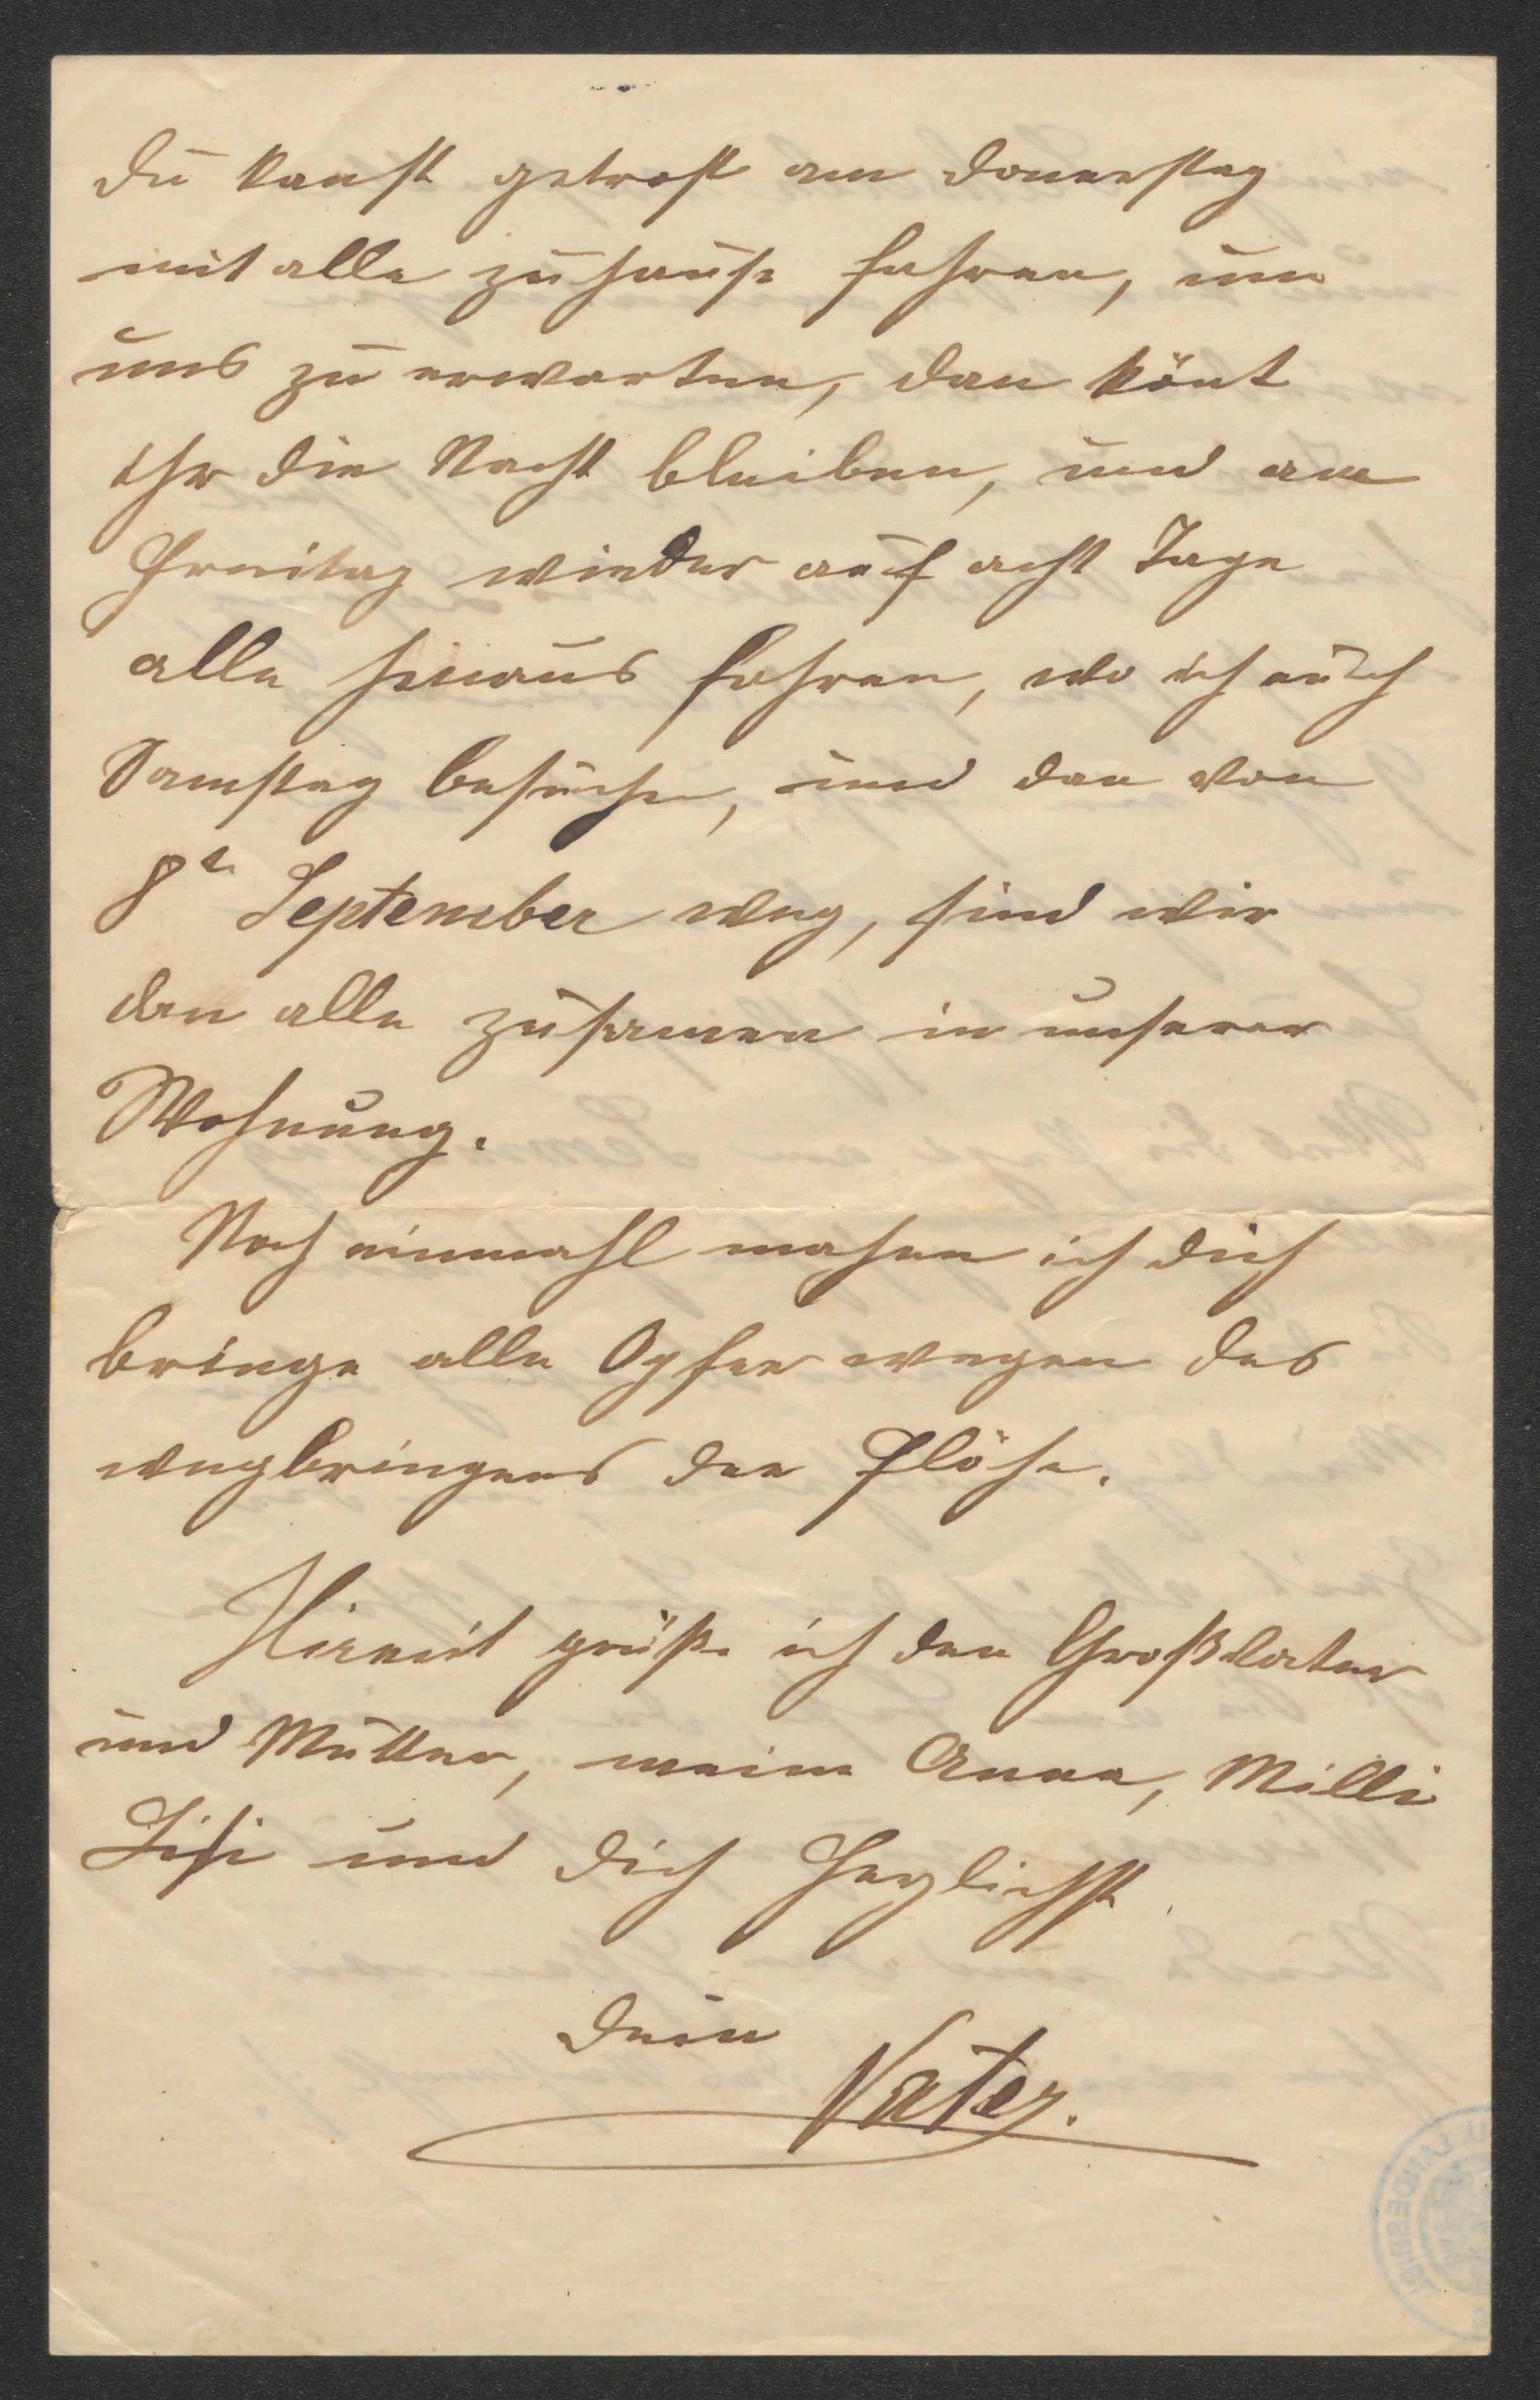 du kanst getrost am Donerstag
mit alle zuhause fahren, um
uns zu erwarten, dan könt
ihr die Nacht bleiben, und am
Freitag wieder auf acht Tage
alle hinaus fahren, wo ich euch
Samstag besuche, und dan von
8te September weg, sind wir
dan alle zusamen in unserer
Wohnung.
Noch einmahl mahne ich dich
bringe alle Opfer wegen des
wegbringens der Flöhe.
Hiermit grüße ich den Großvater
und Mutter, meine Anna, Milli
Lisi und dich herzlichst
dein
Vater.